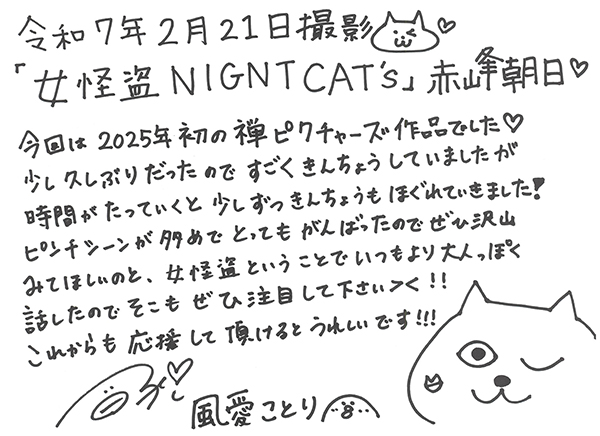 令和7年2月21日撮影
「女怪盗NIGNTCAT's」赤峰朝日♡
今回は2025年初の禅ピクチャーズ作品でした♡
少し久しぶりだったのですごくきんちょうしていましたが
時間がたっていくと少しずつきんちょうもほぐれていきました!
ピンチシーンが多めでとってもがんばったのでぜひ沢山
みてほしいのと、女怪盗ということでいつもより大人っぽく
話したのでそこもぜひ注目して下さい><!!
これからも応援して頂けるとうれしいです!!!
風愛ことり